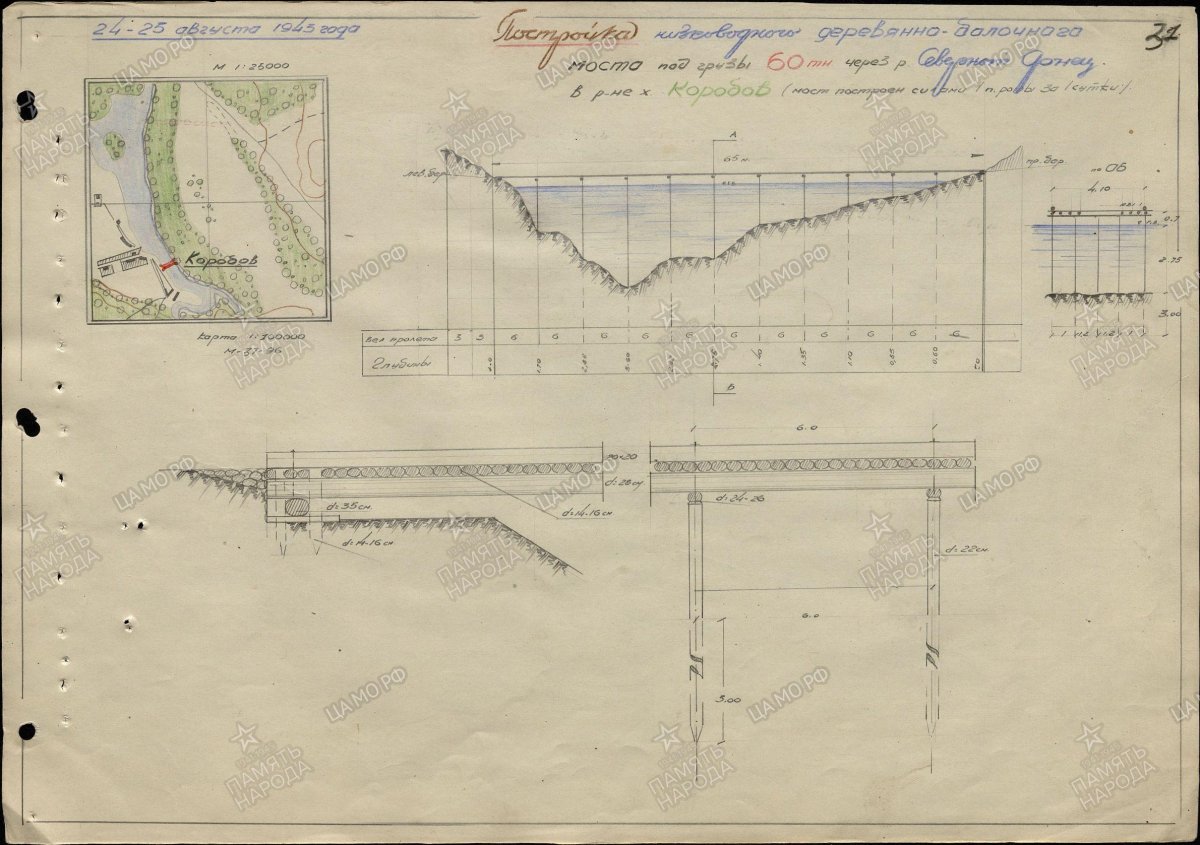 24-25 августа 1943 года
Постройка низководного деревянно-балочнага
моста под грузы 60 тн через р Северный Донец.
в р-не х. Коробов (мост построен силами 1 п.роты за 1 сутки).
31
М 1:25000
Коробов
Карта 1:300000
М-37-96
А
65 м.
лев. бер.
пр. бер.
по ОБ
4.10
0.7
2.75
3.00
Вел пролета 3 3 6 6 6 6 6 6 6 6 6 6
Глубины 1.70 1.40 1.35 1.10 0.85 0.60
Б
6.0
d=28см
d=35см
d=14-16см
d=14-16см
d=24-26
d=22см
6.0
3.00
ЦАМО.РФ
ПАМЯТЬ НАРОДА